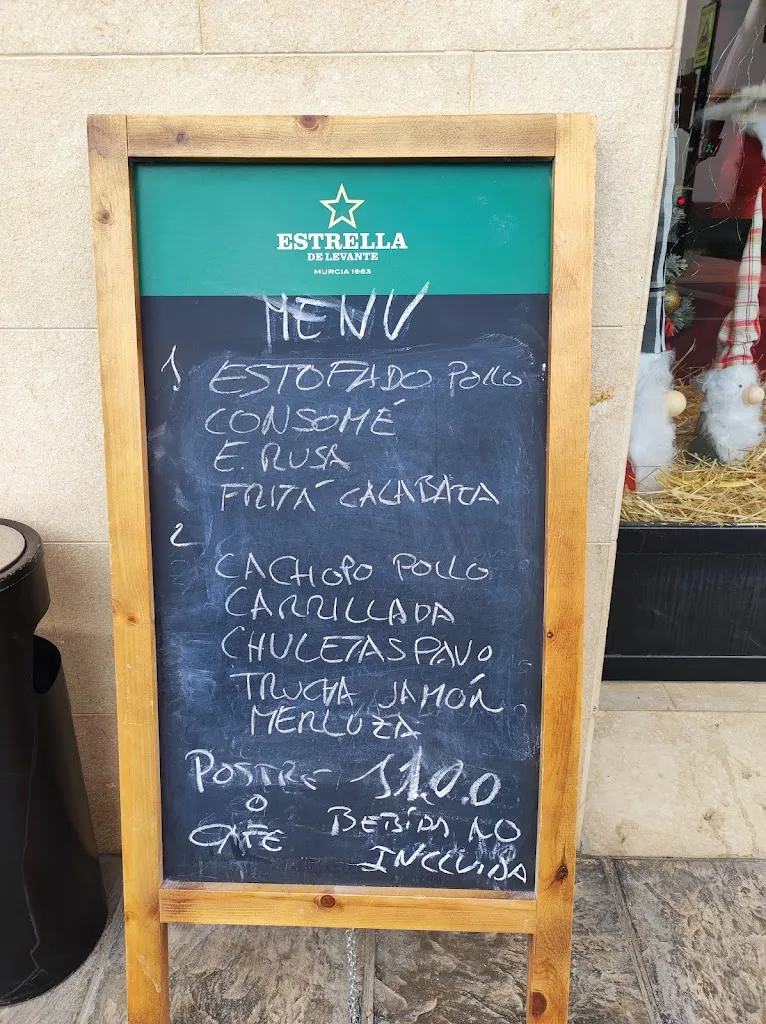 ESTRELLA
DE LEVANTE
MURCIA 1963
MENU
1 ESTOFADO POLLO
CONSOMÉ
E. RUSA
FRITÁ CALABAZA
2
CACHOPO POLLO
CARRILLADA
CHULETAS PAVO
TRUCHA JAMÓN
MERLUZA
POSTRE 11.00
O
CAFE BEBIDA NO
INCLUIDA